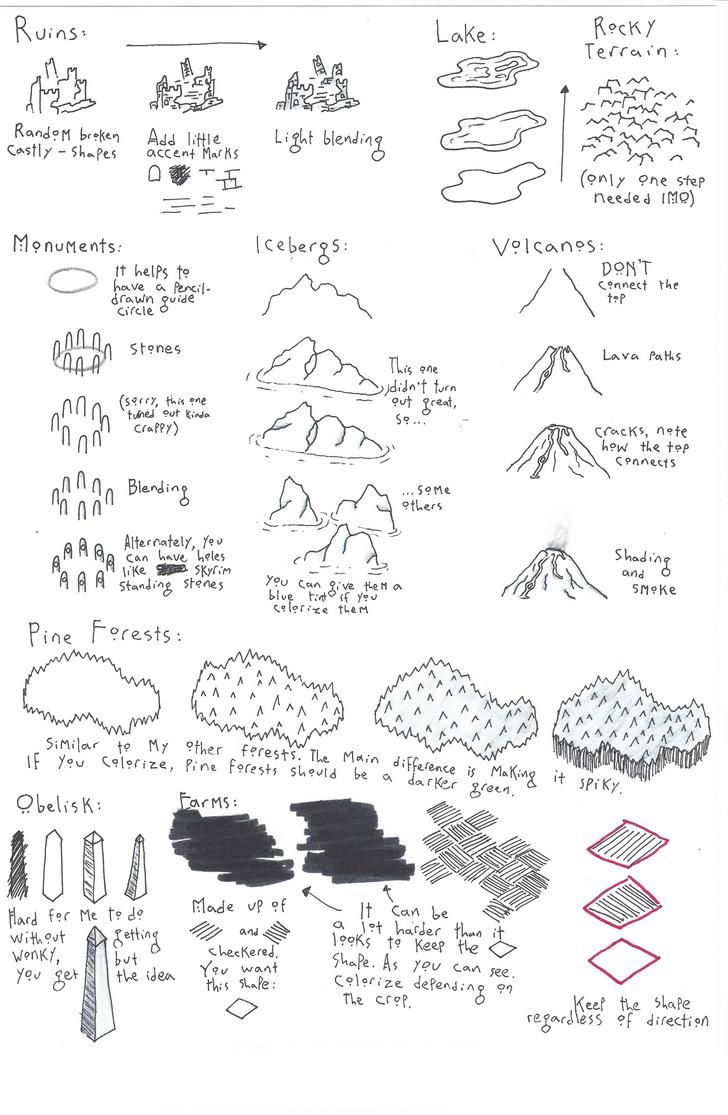 Ruins:
Random broken
Castly - shapes
Add little
accent Marks
Light blending
Lake:
Rocky
Terrain:
(only one step
needed IMO)
Monuments:
It helps to
have a pencil-
drawn guide
circle
Stones
(sorry, this one
tuned out kinda
crappy)
Blending
Alternately, you
can have holes
like Skyrim
standing stones
Icebergs:
This one
didn't turn
out great,
so...
...some
others
You can give them a
blue tint if you
colorize them
Volcanos:
DON'T
connect the
top
Lava paths
Cracks, note
how the top
connects
Shading
and
smoke
Pine Forests:
Similar to My other forests. The Main difference is Making it spiky.
If you Colorize, Pine Forests should be a darker green.
Obelisk:
Hard for Me to do
without getting
wonky, but
you get the idea
Farms:
Made up of
and
checkered.
You want
this shape:
It can be
a lot harder than it
looks to keep the
shape. As you can see.
Colorize depending on
the crop.
Keep the shape
regardless of direction